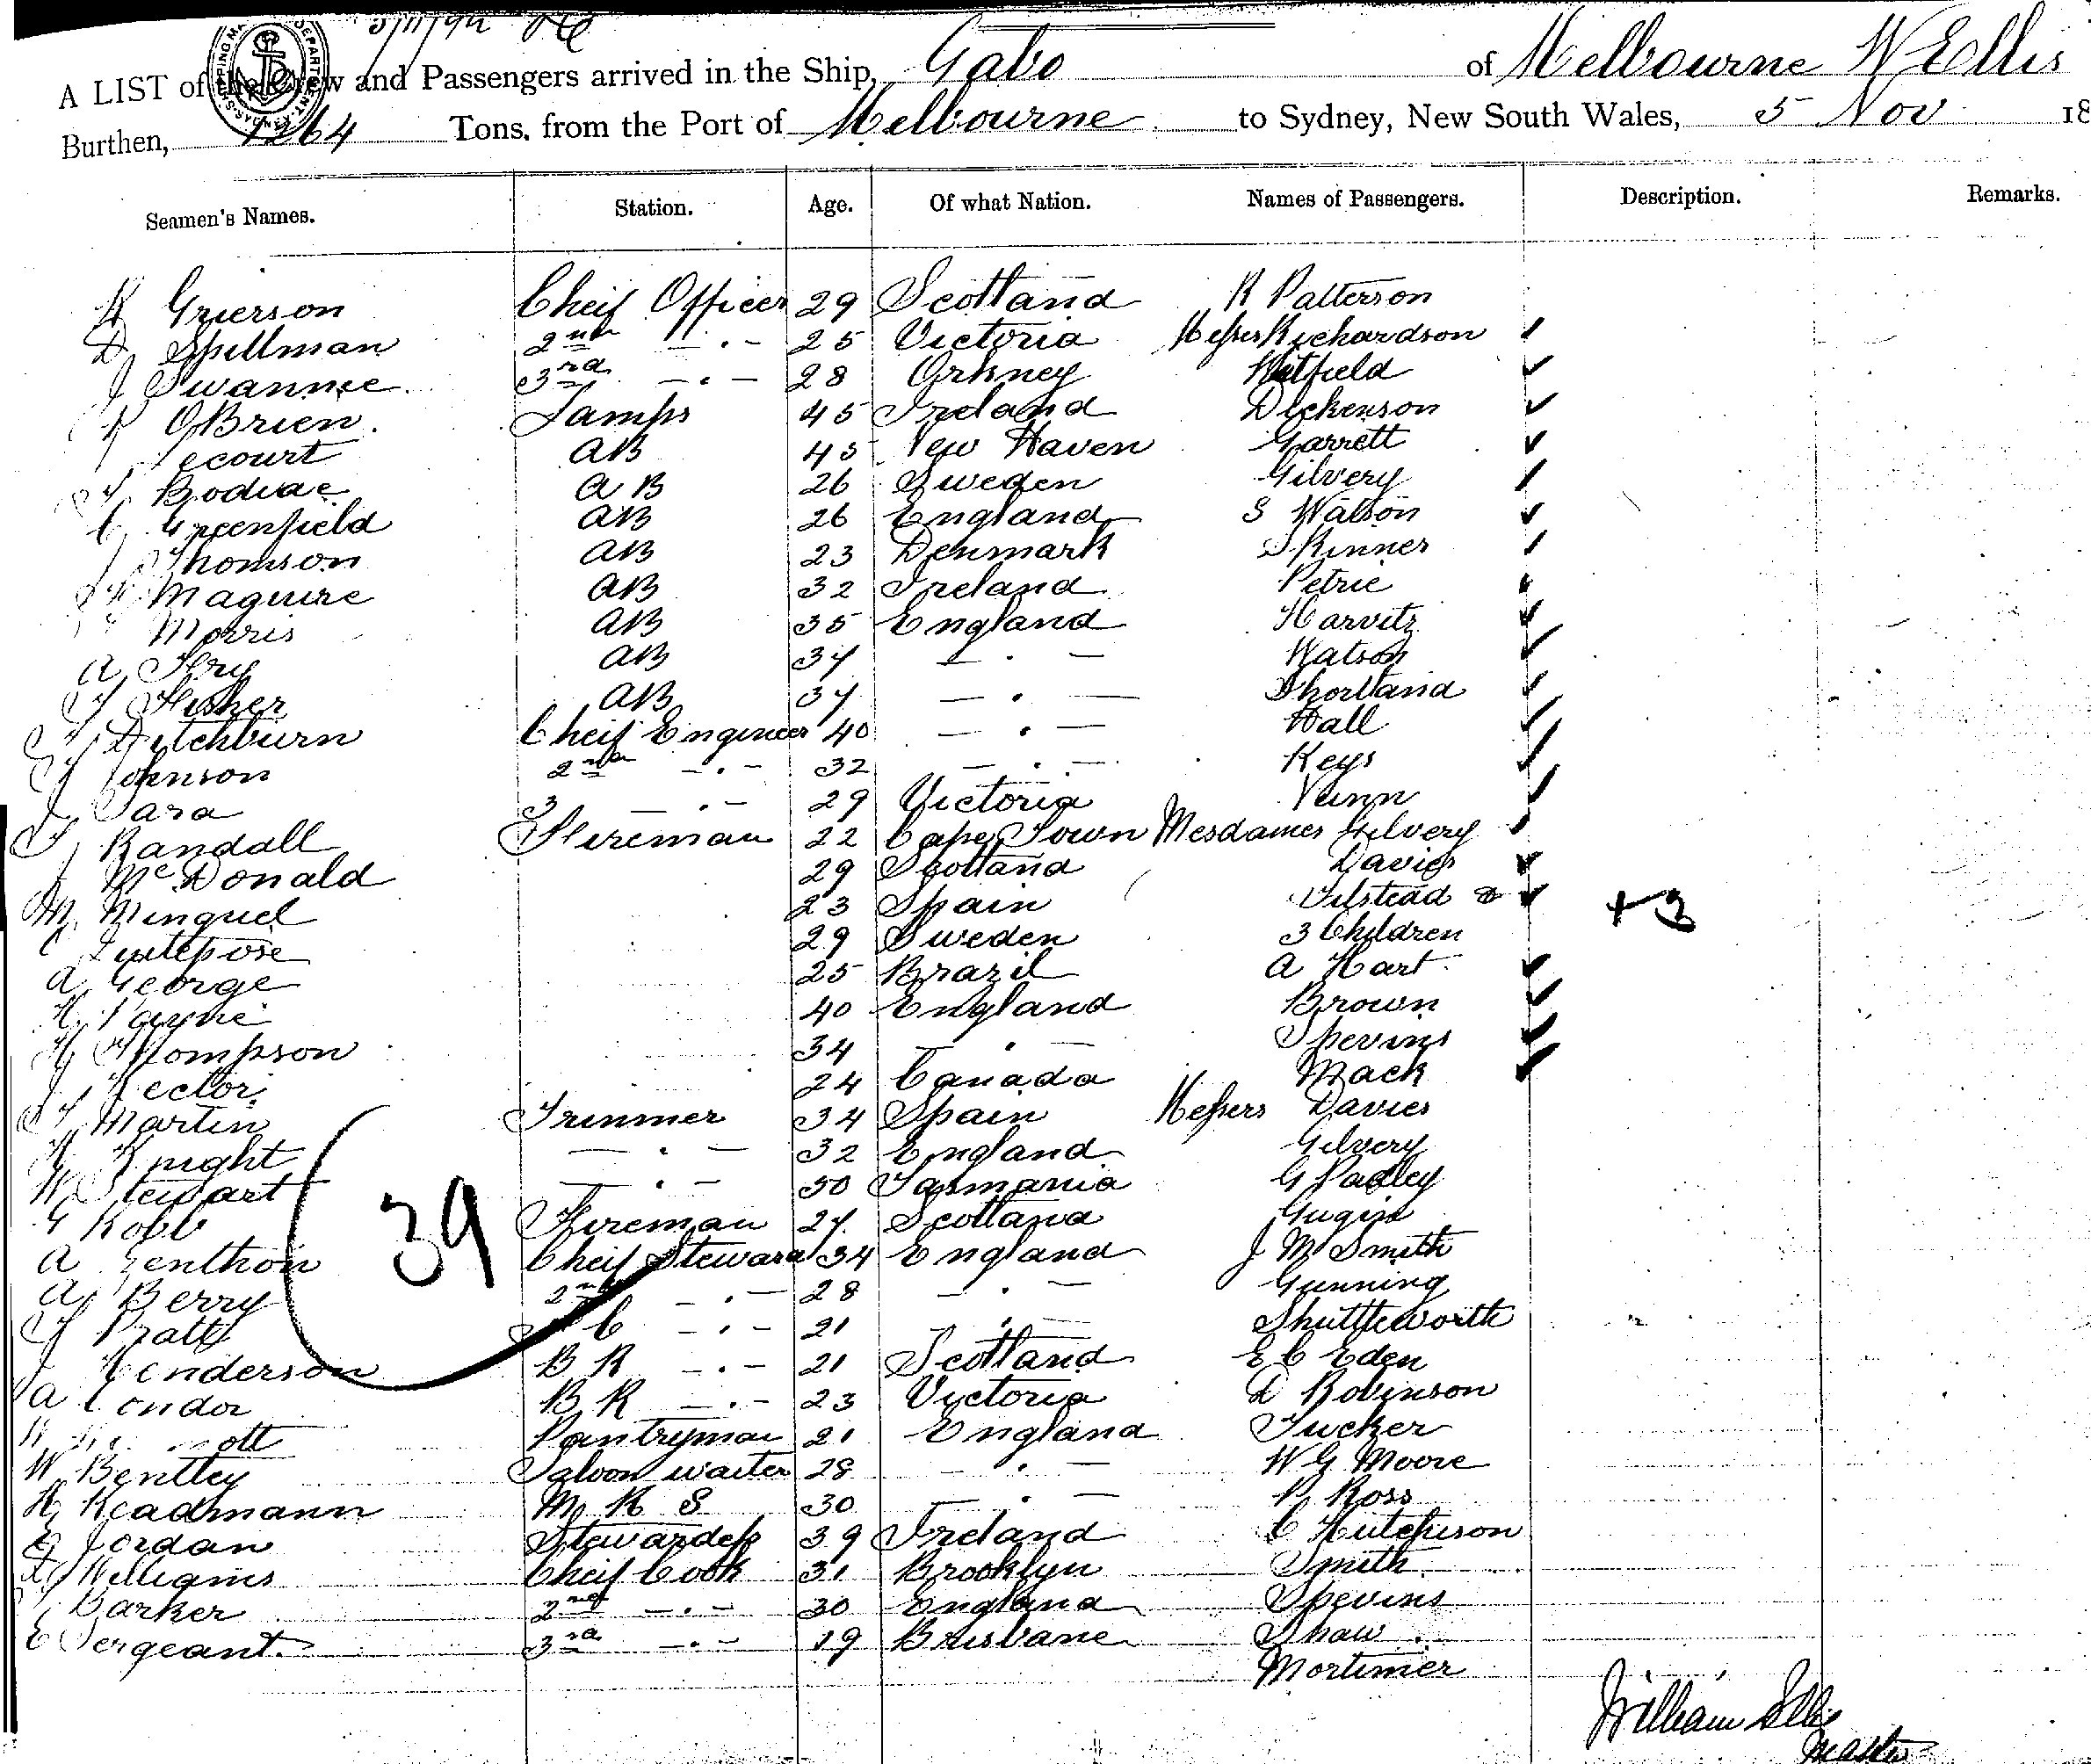 5/11/92
A LIST of the Crew and Passengers arrived in the Ship, Gabo of Melbourne W Ellis
Burthen, 1264 Tons, from the Port of Melbourne to Sydney, New South Wales, 5 Nov 18
Seamen's Names. Station. Age. Of what Nation. Names of Passengers. Description. Remarks.
Grierson Cheif Officer 29 Scotland R Patterson
D Spillman 2nd —.— 25 Victoria Messrs Richardson
J Swannie 3rd —.— 28 Orkney Hatfield
P OBrien Lamps 45 Ireland Dickenson
Lecourt AB 45 New Haven Garrett
Bodiae AB 26 Sweden Gilvery
C Greenfield AB 26 England S Watson
J Thomson AB 23 Denmark Skinner
Maguire AB 32 Ireland Petrie
Morris AB 35 England Harvitz
A Fry AB 34 —.— Watson
Fisher AB 34 —.— Shortland
Ditchburn Cheif Engineer 40 —.— Hall
J Johnson 2nd —.— 32 —.— Keys
J Sara 3 —.— 29 Victoria Vann
Randall Fireman 22 Cape Town Mesdames Gilvery
J McDonald 29 Scotland Davies
M Minguel 23 Spain Tilstead &
+3
C 29 Sweden 3 Children
A George 25 Brazil A Hart
H Payne 40 England Brown
H Thompson 34 —.— Spevins
J Rector 24 Canada Mack
Martin Trimmer 34 Spain Messrs Davies
H Knight —.— 32 England Gilvery
W Stewart —.— 50 Tasmania G Padley
G Robb Fireman 27 Scotland Gugin
39
A Genthon Cheif Steward 34 England J M Smith
A Berry 2nd —.— 28 —.— Gunning
Pratt C —.— 21 —.— Shuttleworth
J Henderson BR —.— 21 Scotland E C Eden
A Condor BR —.— 23 Victoria D Robinson
Pantryman 21 England Tucker
W Bentley Saloon waiter 28 —.— W G Moore
H Readmann M R S 30 —.— P Ross
E Jordan Stewardess 39 Ireland C Hutchison
Williams Cheif Cook 31 Brooklyn Smith
Barker 2nd —.— 30 England Spevins
E Sergeant 3rd —.— 19 Brisbane Shaw
Mortimer
William Ellis
Master